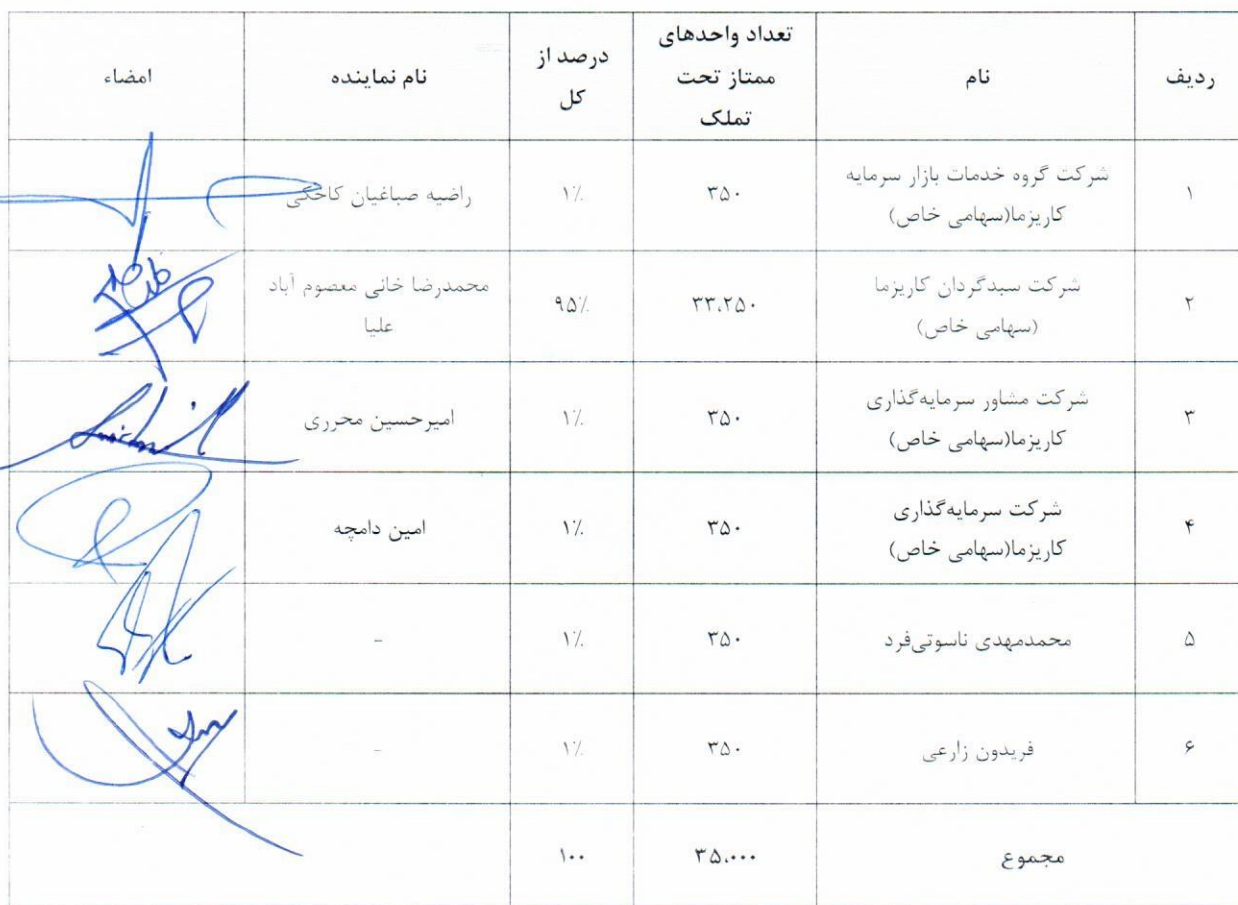 ردیف
نام
تعداد واحدهای
ممتاز تحت
تملک
درصد از
کل
نام نماینده
امضاء
۱
شرکت گروه خدمات بازار سرمایه
کاریزما(سهامی خاص)
۳۵۰
۱٪
راضیه صباغیان کاخکی
۲
شرکت سبدگردان کاریزما
(سهامی خاص)
۳۳،۲۵۰
۹۵٪
محمدرضا خانی معصوم آباد
علیا
۳
شرکت مشاور سرمایه‌گذاری
کاریزما(سهامی خاص)
۳۵۰
۱٪
امیرحسین محرری
۴
شرکت سرمایه‌گذاری
کاریزما(سهامی خاص)
۳۵۰
۱٪
امین دامچه
۵
محمدمهدی ناسوتی‌فرد
۳۵۰
۱٪
-
۶
فریدون زارعی
۳۵۰
۱٪
-
مجموع
۳۵،۰۰۰
۱۰۰